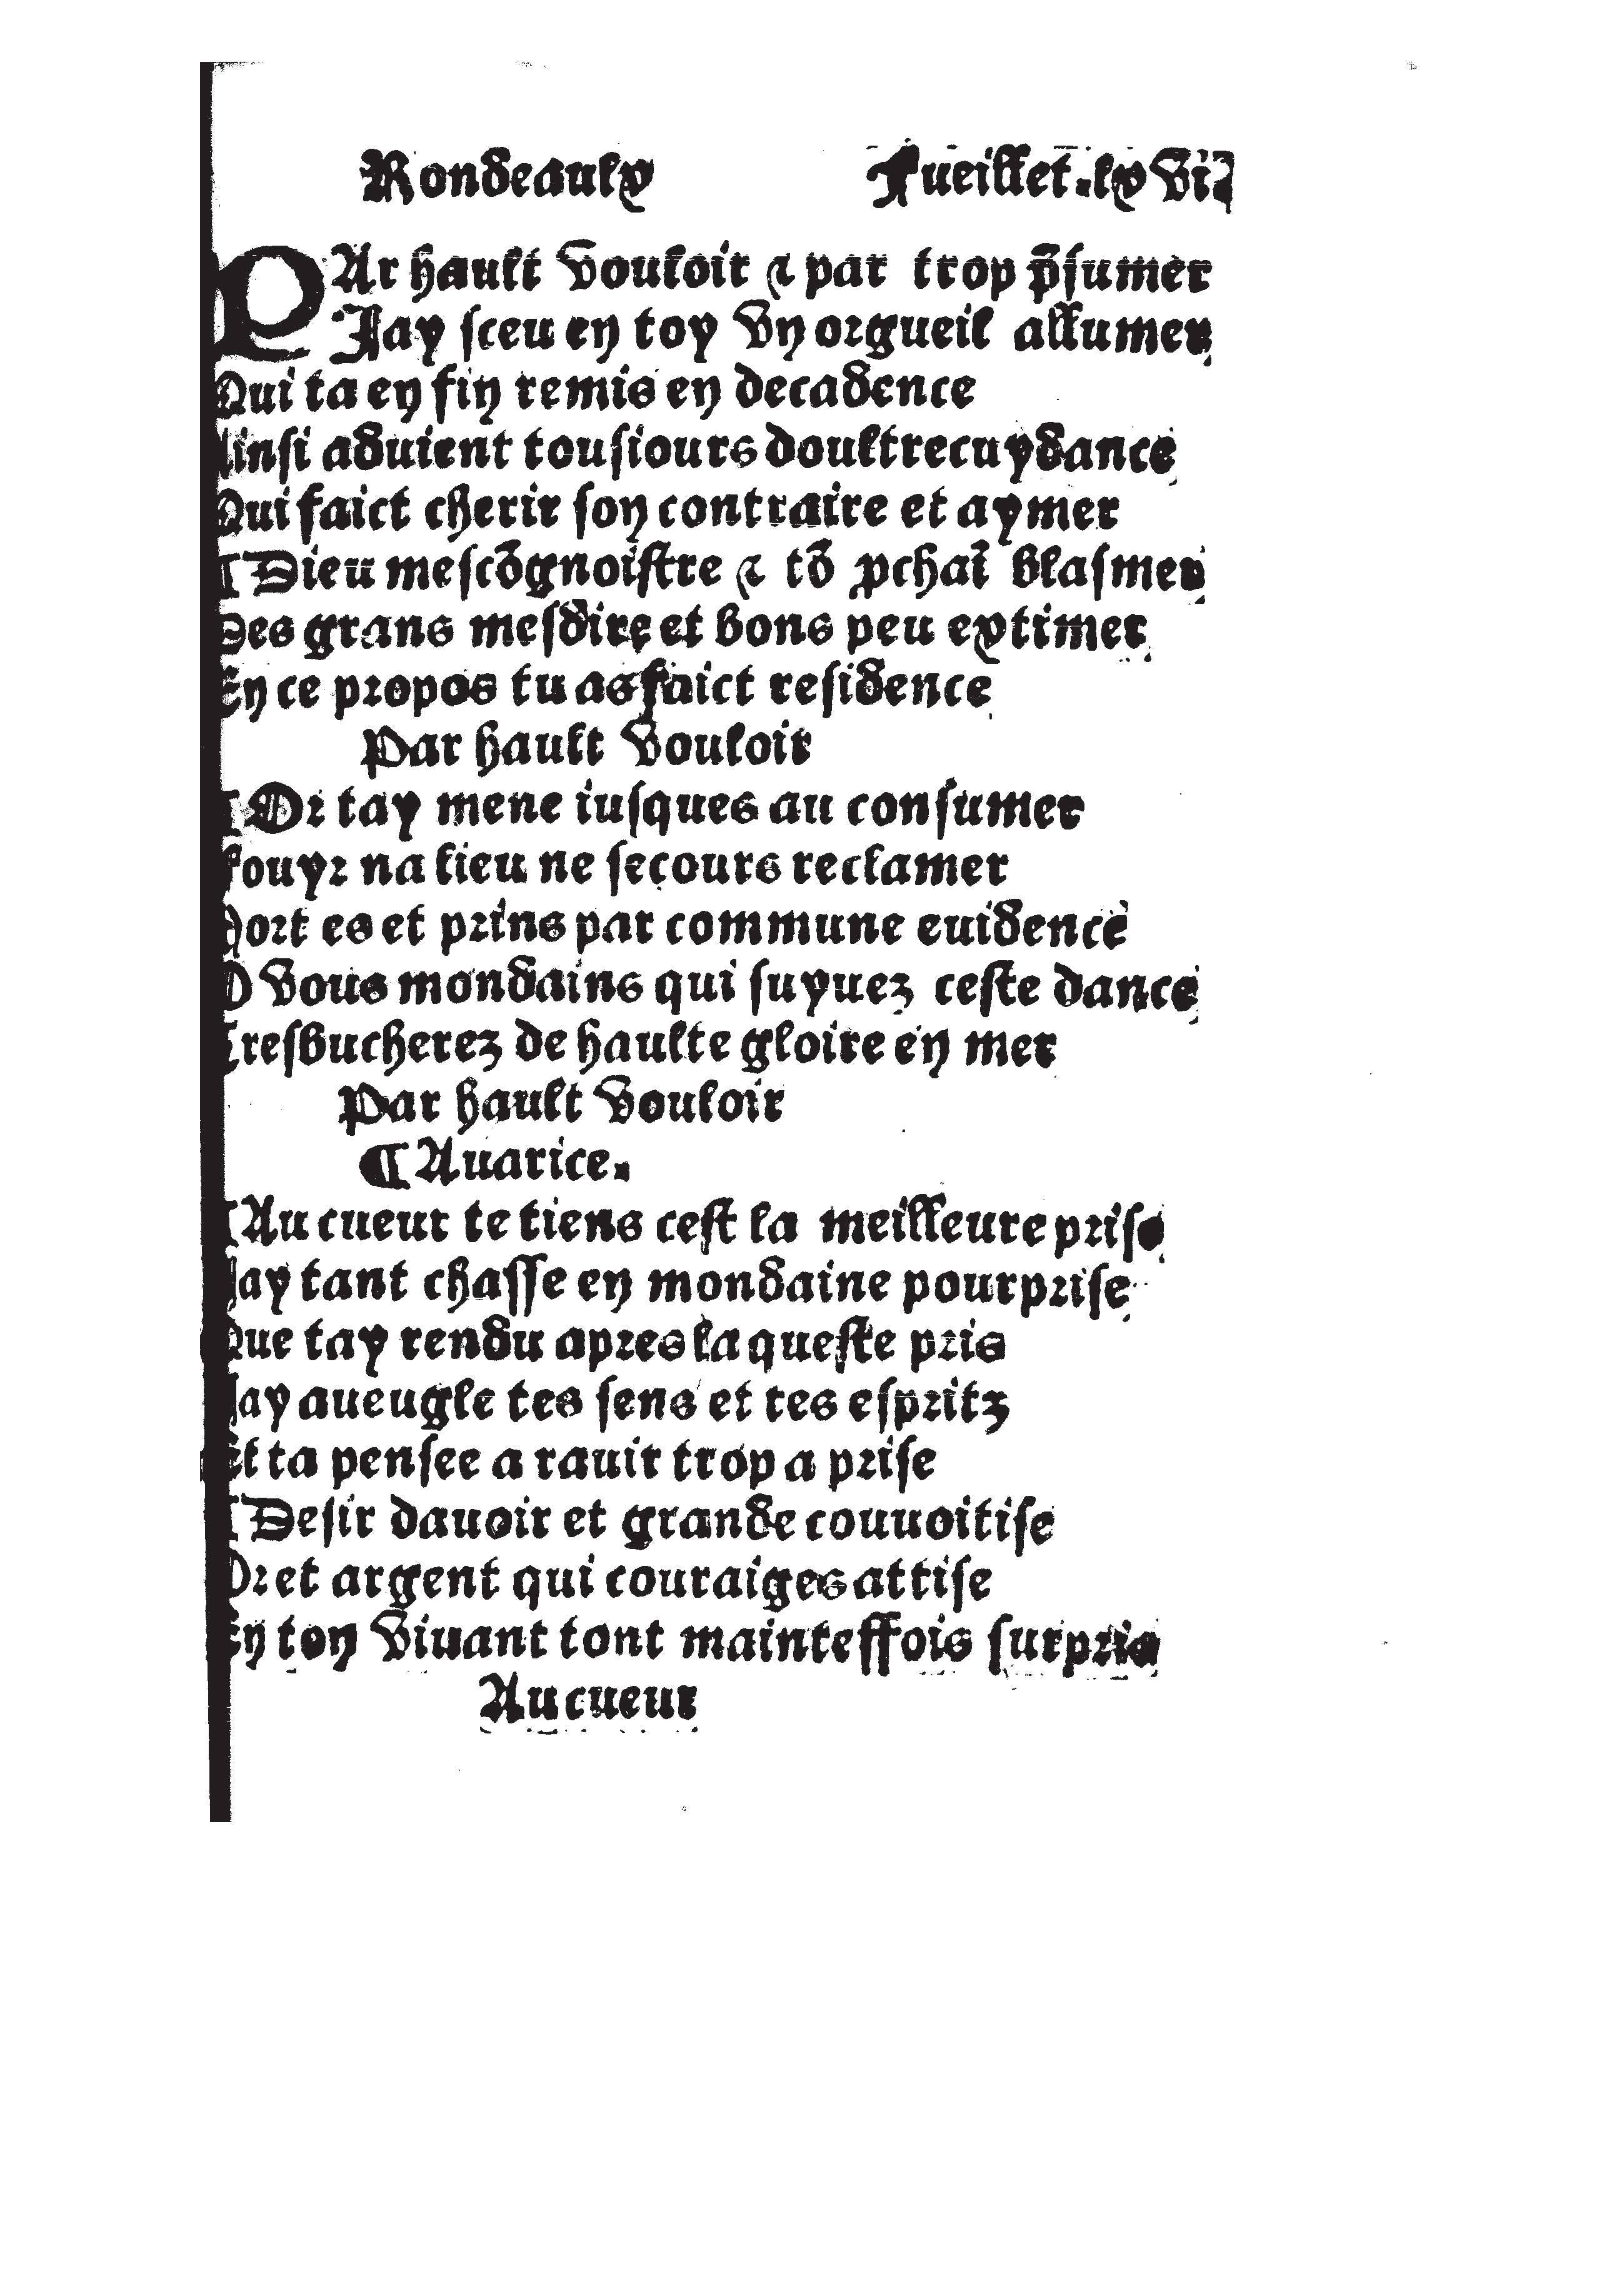 Rondeaulx Fueillet.lxvii
PAr hault vouloir ⁊ par trop p̃sumer
Jay sceu en toy vn orgueil allumer
Qui ta en fin remis en decadence
Ainsi aduient tousiours doultrecuydance
Qui faict cherir son contraire et aymer
¶ Dieu mescõgnoistre ⁊ tõ ꝓchaĩ blasmer
Des grans mesdire et bons peu extimer
En ce propos tu as faict residence
Par hault vouloir
¶ Or tay mene iusques au consumer
Louyr na lieu ne secours reclamer
Mort es et prins par commune euidence
O vous mondains qui suyuez ceste dance
Tresbucherez de haulte gloire en mer
Par hault vouloir
¶ Auarice.
¶ Au cueur te tiens cest la meilleure prise
Jay tant chasse en mondaine pourprise
Que tay rendu apres la queste pris
Jay aueugle tes sens et tes espritz
Et ta pensee a rauir trop a prise
¶ Desir dauoir et grande couuoitise
Or et argent qui couraiges attise
En ton viuant tont mainteffois surpris
Au cueur